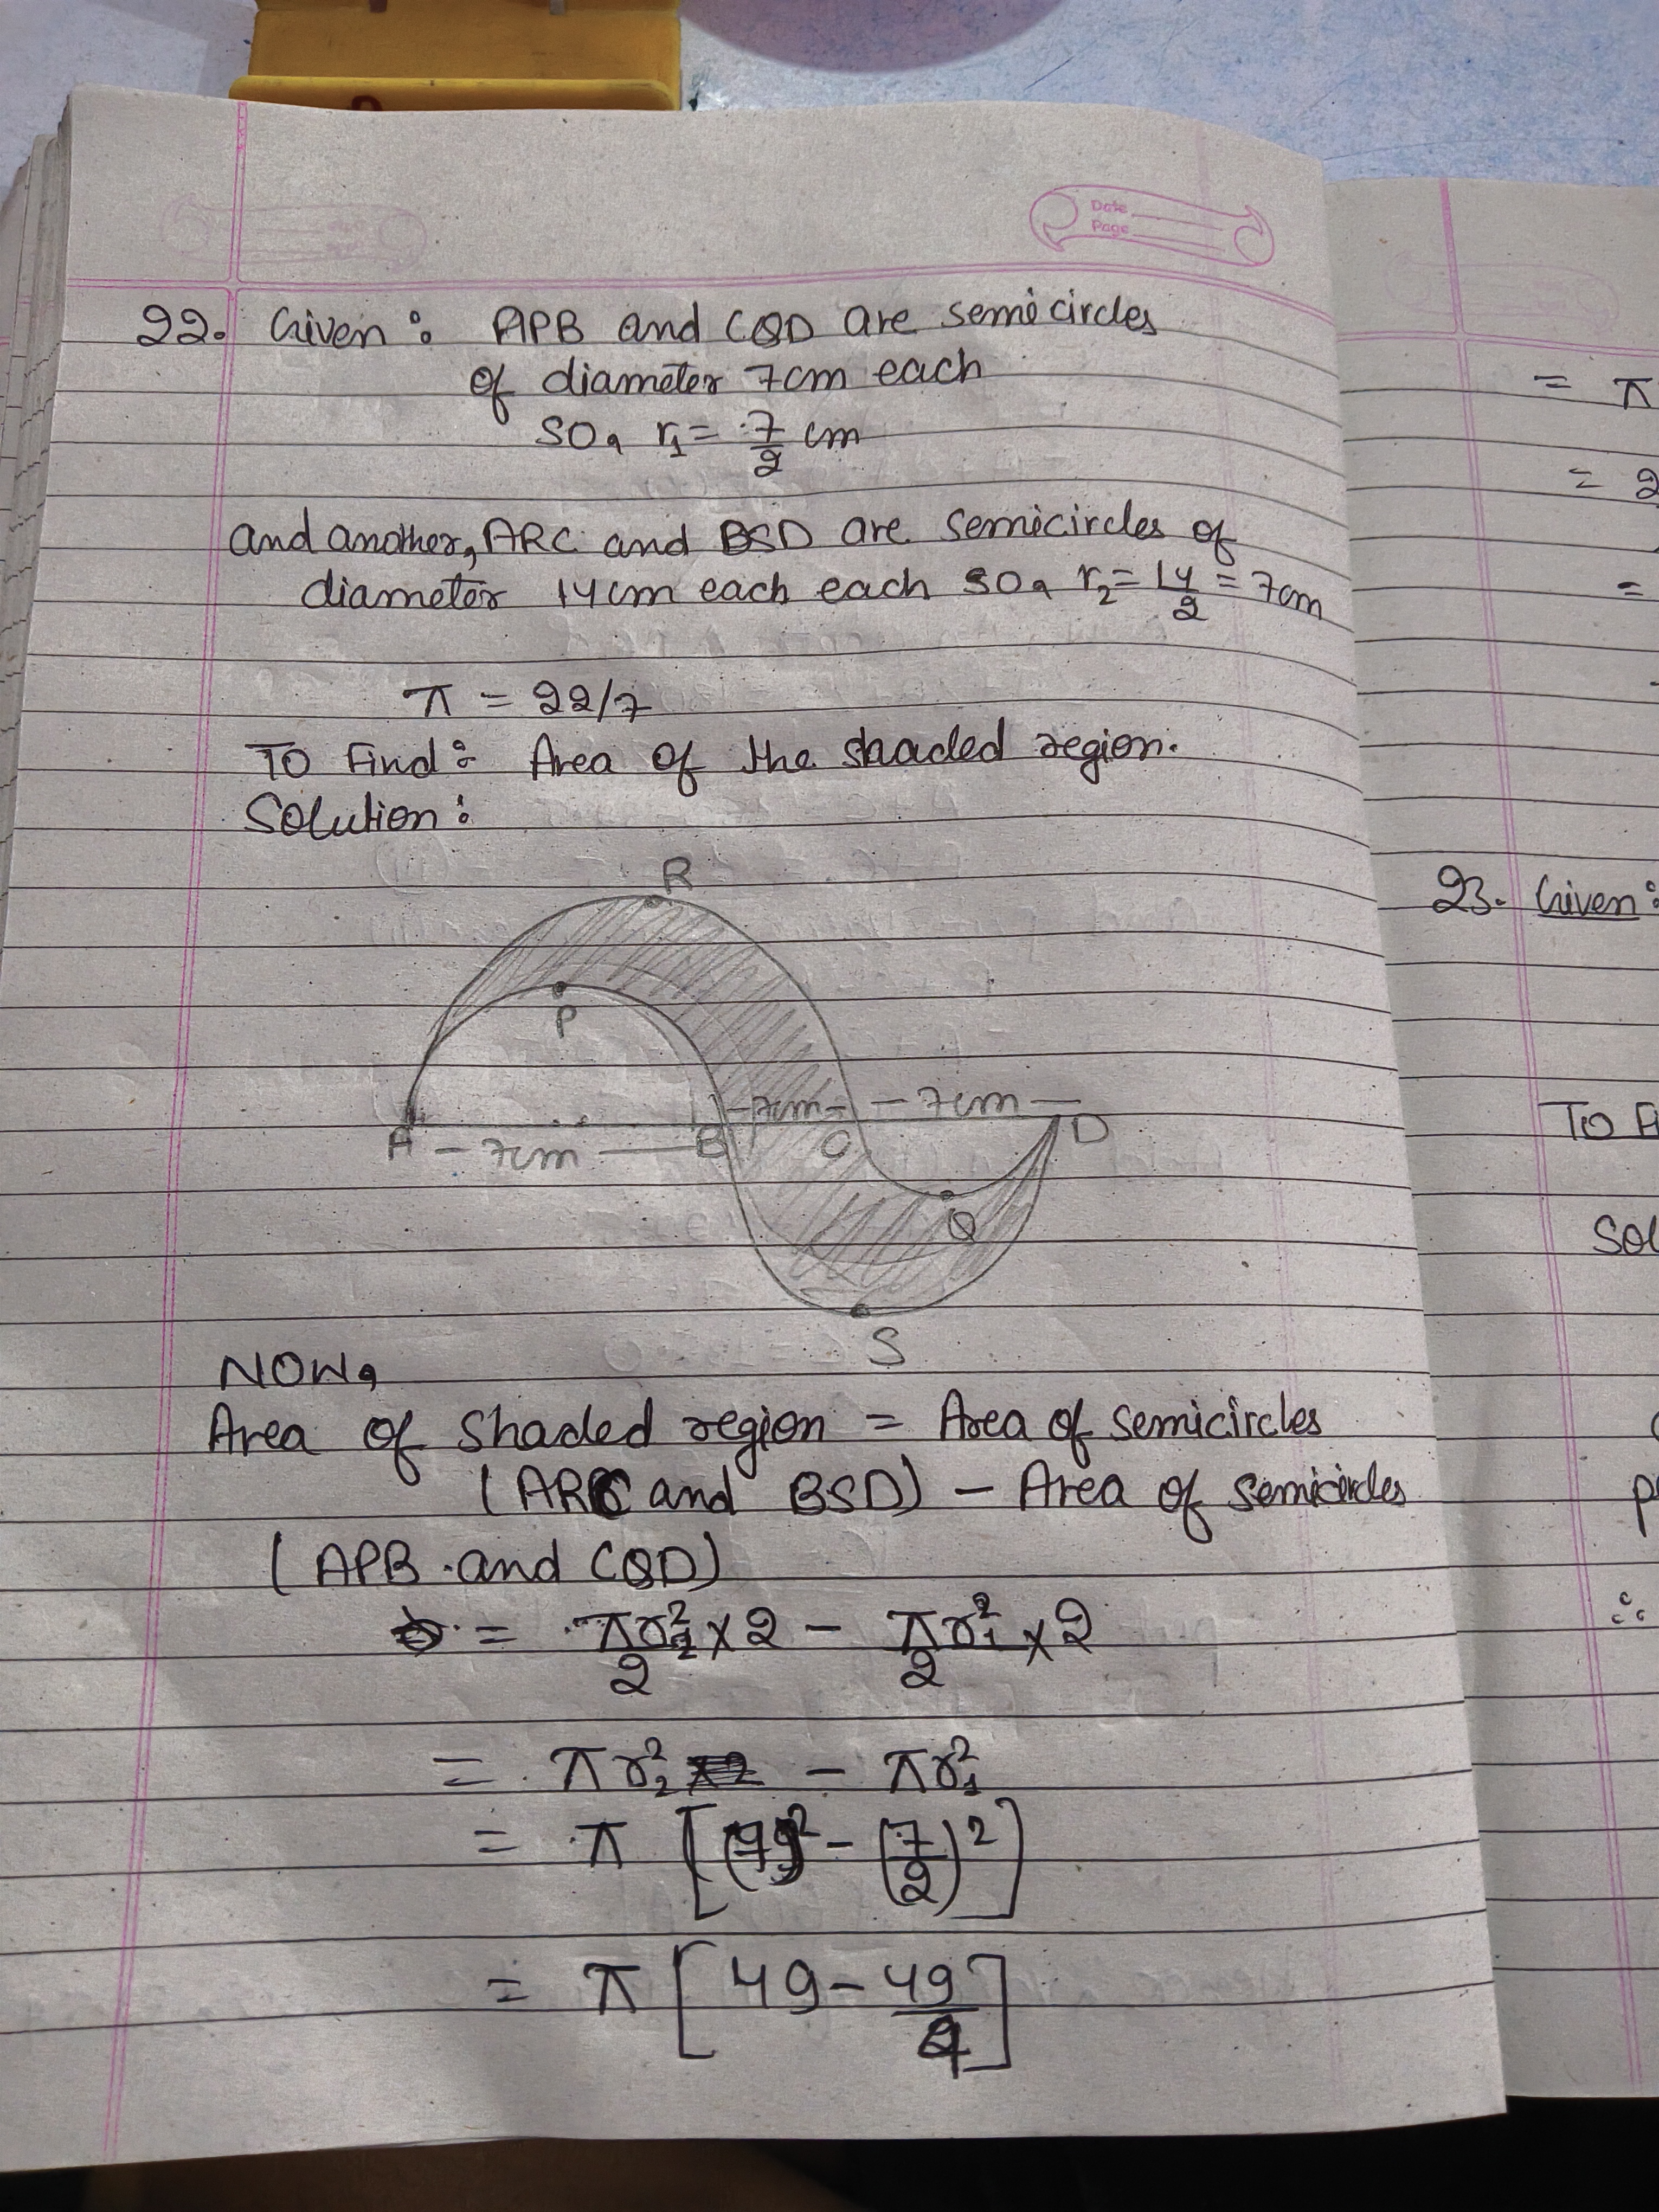 Date
Page
22. Given : APB and CQD are semicircles
of diameter 7cm each
SO, r₁ = 7/2 cm
and another, ARC and BSD are semicircles of
diameter 14cm each each SO, r₂ = 14/2 = 7cm
π = 22/7
TO Find : Area of the shaded region.
Solution :
R
P
-7cm- -7cm-
A -7cm- B C D
Q
S
NOW,
Area of shaded region = Area of semicircles
(ARC and BSD) - Area of semicircles
(APB and CQD)
= πr₂²/2 × 2 - πr₁²/2 × 2
= πr₂² - πr₁²
= π [(7)² - (7/2)²]
= π [49 - 49/4]
= π
= 2
=
23. Given :
TO F
Sol
∴